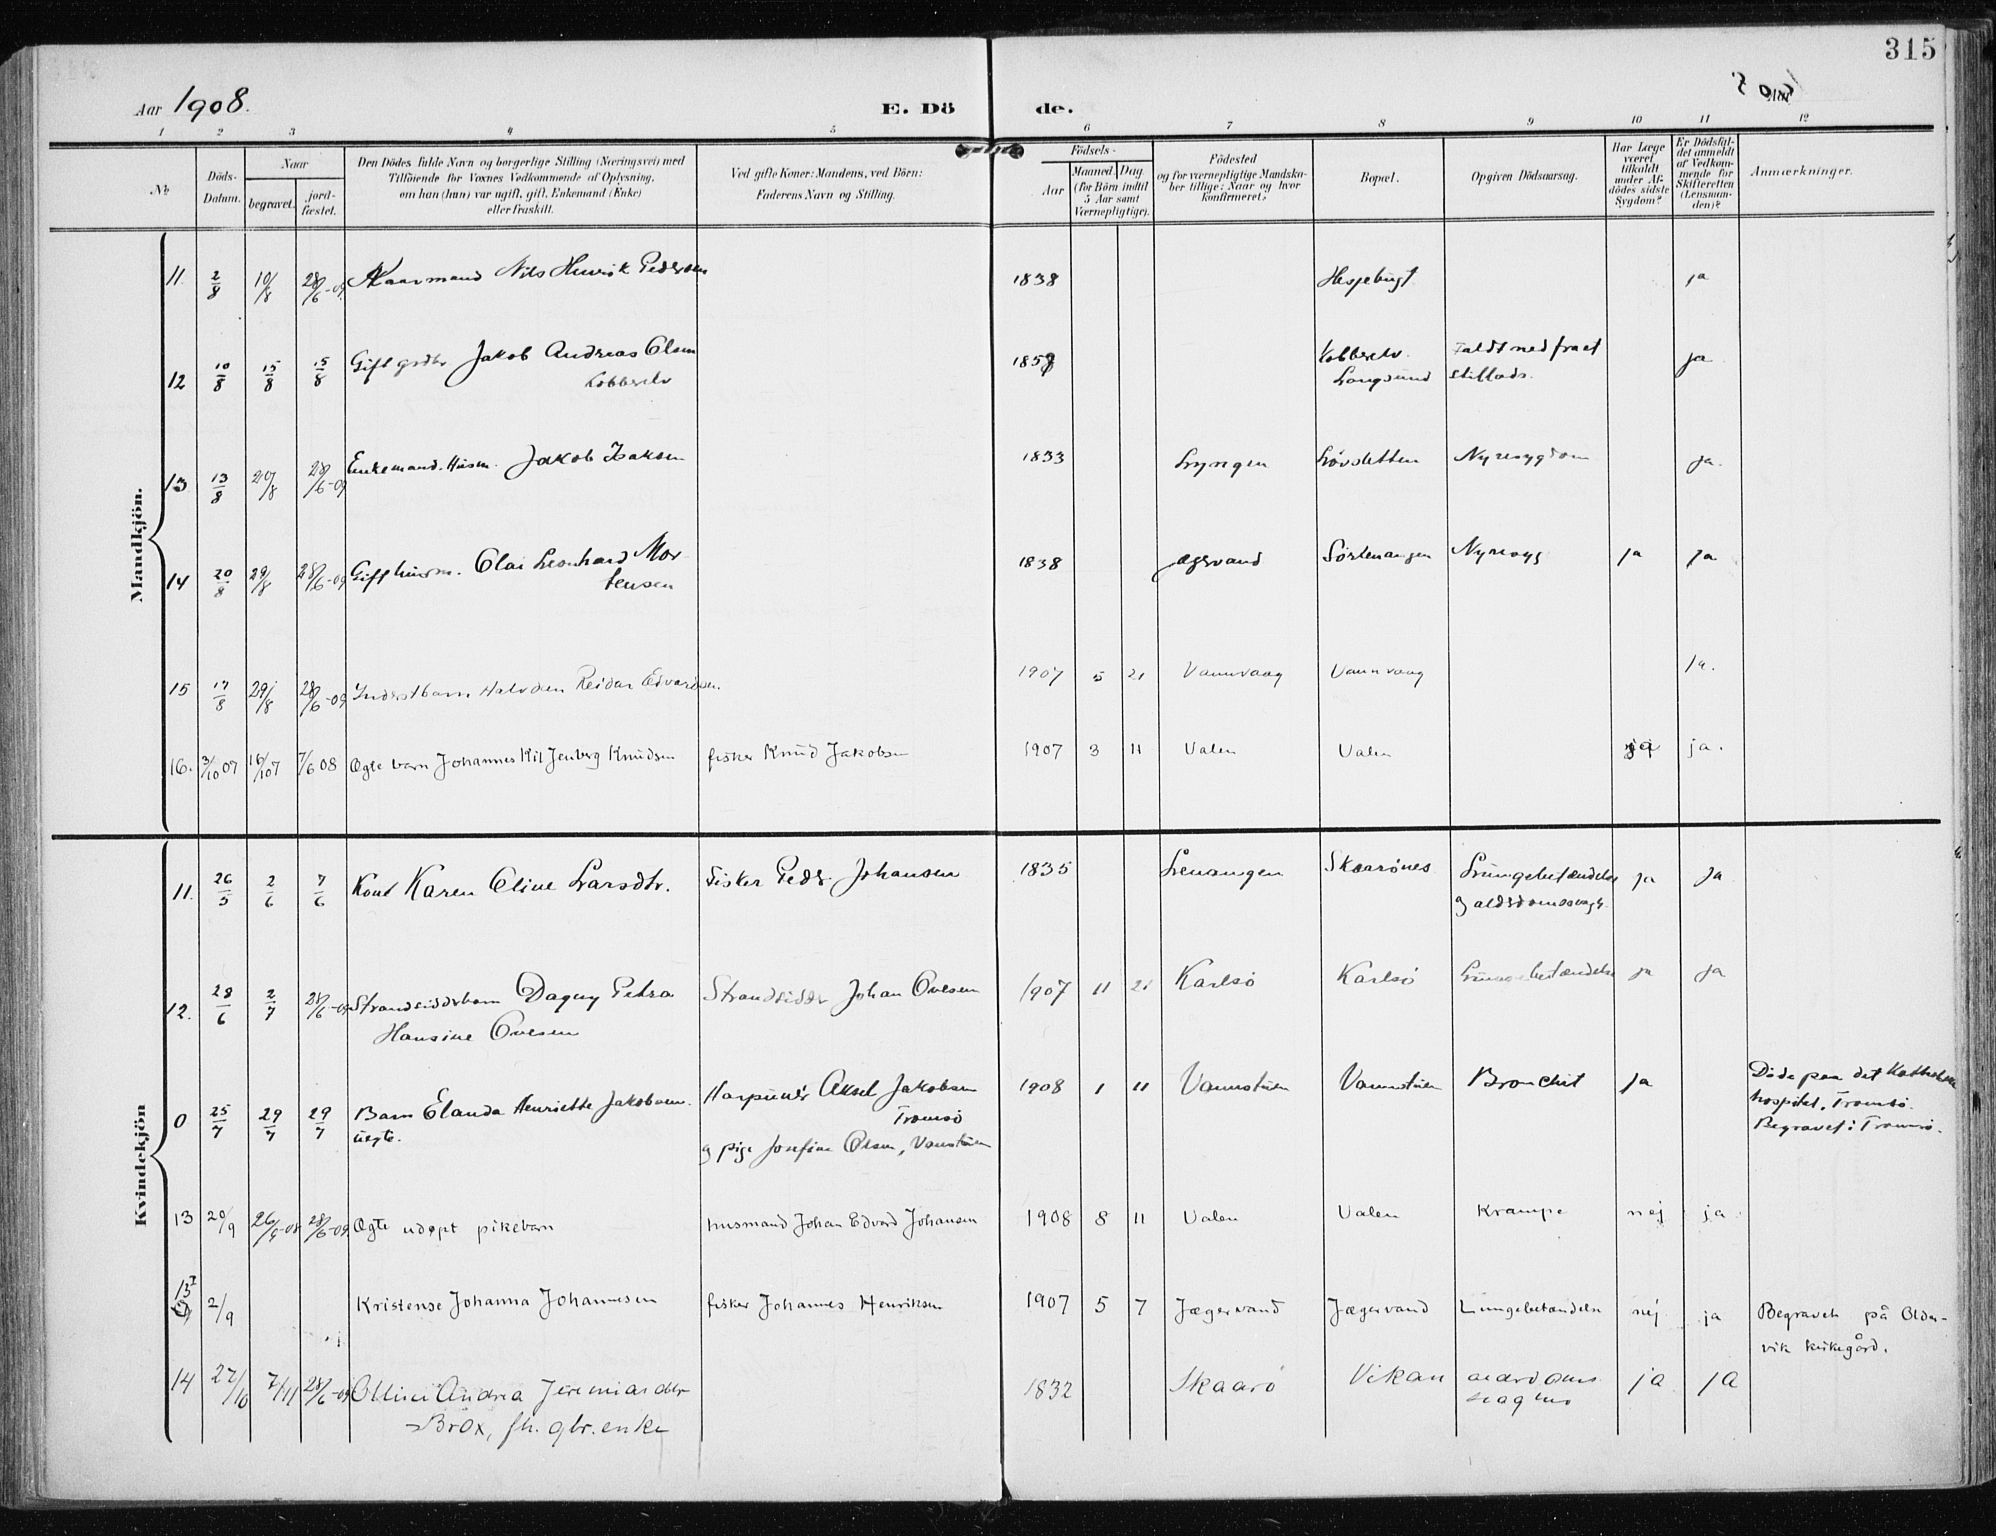 315
Aar 1908.
E. Dö de.
1 2 3 4 5 6 7 8 9 10 11 12
No
Döds-Datum.
Naar
begravet.
jord-fæstet.
Den Dödes fulde Navn og borgerlige Stilling (Næringsvei) med
Tilföiende for Voxnes Vedkommende af Oplysning,
om han (hun) var ugift, gift, Enkemand (Enke)
eller fraskilt.
Ved gifte Koner: Mandens, ved Börn:
Faderens Navn og Stilling.
Födsels-
Aar
Maaned. Dag.
(for Börn indtil
5 Aar samt
Værnepligtige).
Födested
og for værnepligtige Mandska-
ber tillige: Naar og hvor
konfirmeret?
Bopæl.
Opgiven Dödsaarsag.
Har Læge
været
tilkaldt
under Af-
dödes sidste
Sygdom?
Er Dödsfal-
det anmeldt
af Vedkom-
mende for
Skifteretten
(Lensman-
den)?
Anmærkninger.
Mandkjön.
11. 2/8 10/8 28/6-09. Kaarmand Nils Henrik Pedersen 1838 Hessjebugt ja
12 10/8 15/8 15/8 Gift grdbr Jakob Andreas Olsen 1858 Kobberelv. Faldt ned fra et ja
Kobberelv Langsund stillads.
13 13/8 20/8 28/6-09 Enkemand. Husm. Jakob Isaksen 1833 Lyngen Lövsletten Nyresygdom ja.
14 20/8 29/8 28/6-09 Gift husm. Olai Leonhard Mor 1838 Jægervand Sörlenangen Nyresyg ja ja
tensen
15 17/8 29/8 28/6-09 Inderstbarn Halvdan Reidar Edvardsen. 1907 5 21 Vannvaag Vannvaag ja.
16. 3/10 07 16/10 7 7/6 08 Ægte barn Johannes Kil Jenberg Knudsen fisker Knud Jakobsen 1907 3 11 Valen Valen ja ja.
Kvindekjön
11. 26/5 2/6 7/6 Kone Karen Eline Larsdtr. Fisker Peder Johansen 1835 Lenangen Skaarönes Lungebetændelse ja ja
og alderdomssvagh.
12. 28/6 2/7 28/6-09 Strandsidderbarn Dagny Petra Strandsidder Johan Ovesen 1907 11 21 Karlsö Karlsö Lungebetændelse ja ja
Hansine Ovesen
0 25/7 29/7 29/7 Barn Elanda Henriette Jakobsen. Harpuner Aksel Jakobsen 1908 1 11 Vannstuen Vannstuen Bronchit ja Döde paa det Katholske
uegte. Tromsö hospital, Tromsö.
og pige Josefine Olsen, Vanstuen Begravet i Tromsö.
13 20/9 26/9-08 28/6-09 Ægte udøpt pikebarn husmand Johan Edvard Johansen 1908 8 11 Valen Valen Krampe nej ja
13 2/9 Kristense Johanna Johannesen fisker Johannes Henriksen 1907 5 7 Jægervand Jægervand Lungebetændelse nej ja Begravet på Older-
vik kirkegård.
14 27/10 7/11 28/6-09 Olline Andrea Jeremiasdtr 1832 Skaarö Vikan ja ja
Brox, fh. gbr. enke